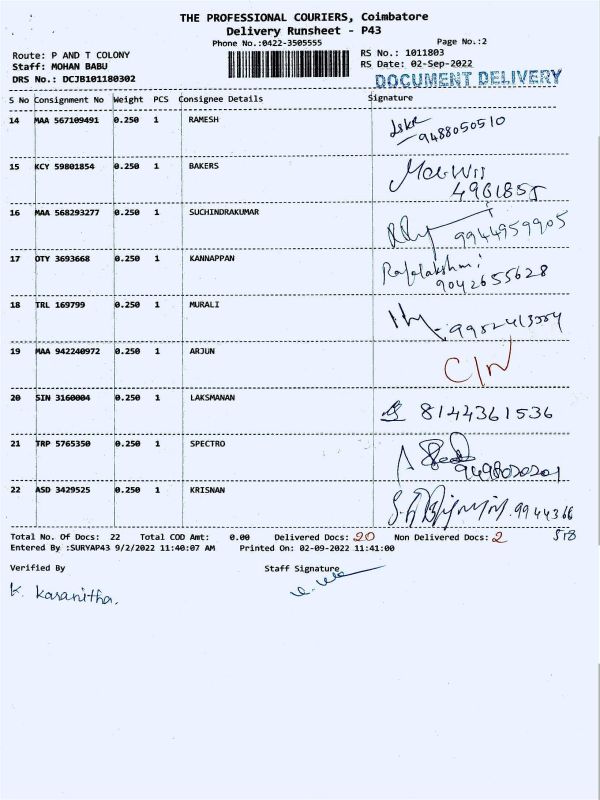 THE PROFESSIONAL COURIERS, Coimbatore
Delivery Runsheet - P43
Phone No.:0422-3505555 Page No.:2
Route: P AND T COLONY RS No.: 1011803
Staff: MOHAN BABU RS Date: 02-Sep-2022
DRS No.: DCJB101180302 DOCUMENT DELIVERY
S No Consignment No Weight PCS Consignee Details Signature
14 MAA 567109491 0.250 1 RAMESH
9488050510
15 KCY 59801854 0.250 1 BAKERS
4961855
16 MAA 568293277 0.250 1 SUCHINDRAKUMAR
9944959905
17 OTY 3693668 0.250 1 KANNAPPAN Rajalakshmi
9042655628
18 TRL 169799 0.250 1 MURALI
19 MAA 942240972 0.250 1 ARJUN C/N
20 SIN 3160004 0.250 1 LAKSMANAN 8144361536
21 TRP 5765350 0.250 1 SPECTRO
22 ASD 3429525 0.250 1 KRISNAN 9944366
518
Total No. Of Docs: 22 Total COD Amt: 0.00 Delivered Docs: 20 Non Delivered Docs: 2
Entered By :SURYAP43 9/2/2022 11:40:07 AM Printed On: 02-09-2022 11:41:00
Verified By Staff Signature
K. Kasanitha.